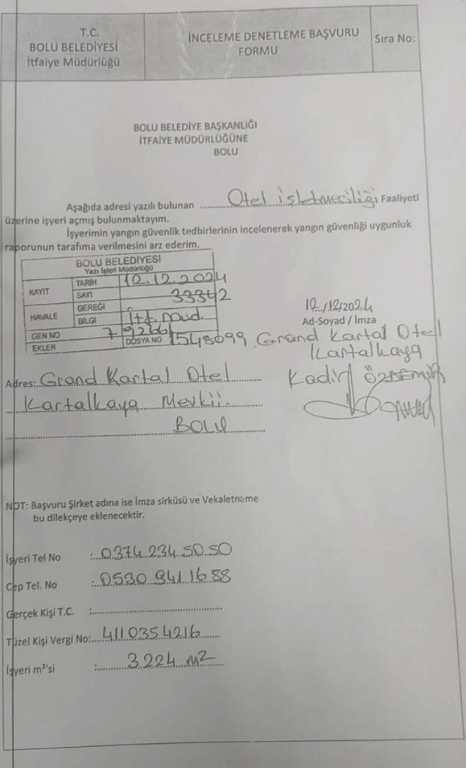 T.C.
BOLU BELEDİYESİ
İtfaiye Müdürlüğü
İNCELEME DENETLEME BAŞVURU
FORMU
Sıra No:
BOLU BELEDİYE BAŞKANLIĞI
İTFAİYE MÜDÜRLÜĞÜNE
BOLU
Aşağıda adresi yazılı bulunan Otel işletmeciliği Faaliyeti
üzerine işyeri açmış bulunmaktayım.
İşyerimin yangın güvenlik tedbirlerinin incelenerek yangın güvenliği uygunluk
raporunun tarafıma verilmesini arz ederim.
BOLU BELEDİYESİ
Yazı İşleri Müdürlüğü
KAYIT TARİH 12.12.2024
SAYI 33342
HAVALE GEREĞİ
BİLGİ İtf. müd.
GEN NO 79266 DOSYA NO 1548099
EKLER
12/12/2024
Ad-Soyad / İmza
Grand Kartal Otel
Kartalkaya
Kadir
Adres: Grand Kartal Otel
Kartalkaya Mevkii.
BOLU
NOT: Başvuru Şirket adına ise İmza sirküsü ve Vekaletname
bu dilekçeye eklenecektir.
İşyeri Tel No : 0374 234 50 50
Cep Tel. No : 0530 941 16 88
Gerçek Kişi T.C. :
Tüzel Kişi Vergi No: 4110354216
İşyeri m²'si : 3224 m2